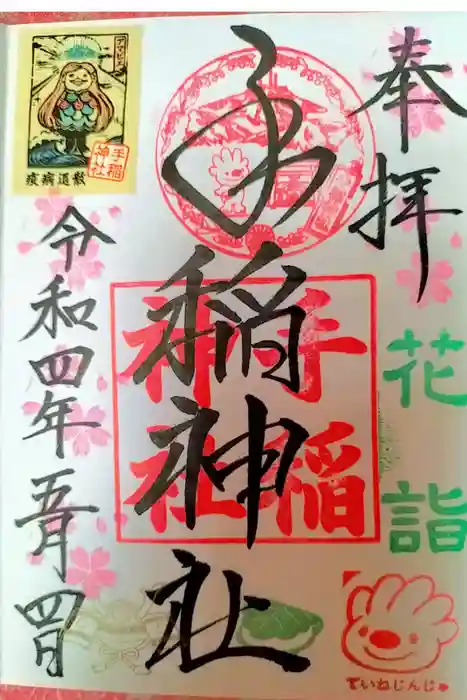 奉拝
花詣
手稲神社
手稲
神社
令和四年五月四日
アマビエ
手稲
神社
疫病退散
ていねじんじゃ